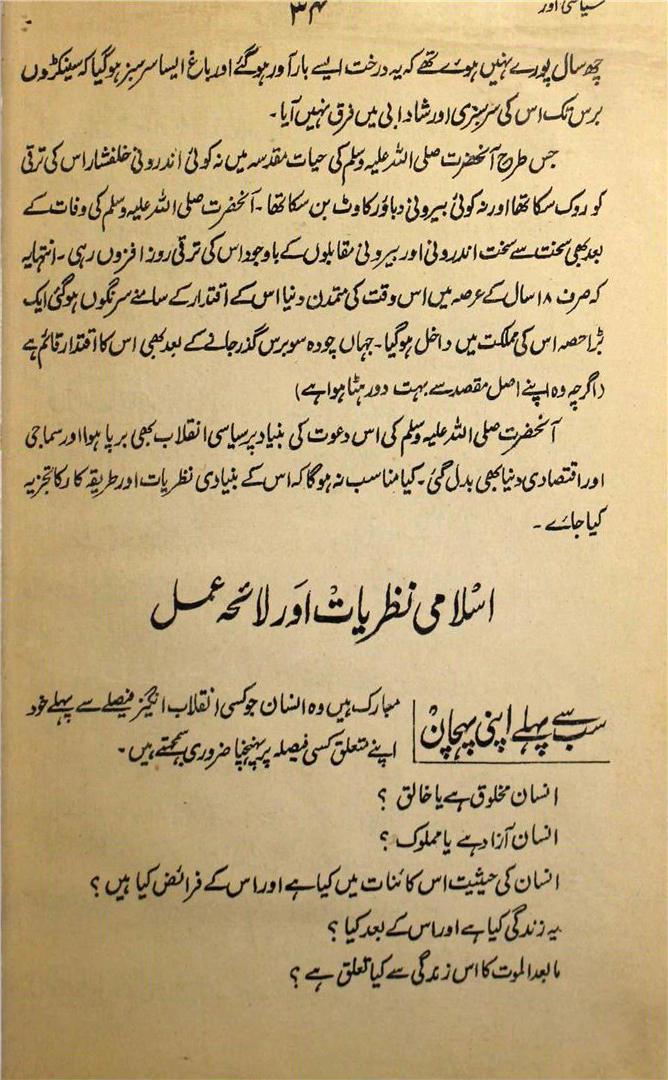 سیاسی اور
۳۴
چھ سال پورے نہیں ہوے تھے کہ یہ درخت ایسے بارآور ہوگئے اور باغ ایسا سرسبز ہوگیا کہ سینکڑوں
برس تک اس کی سرسبزی اور شادابی میں فرق نہیں آیا۔
جس طرح آنحضرت صلی اللہ علیہ وسلم کی حیات مقدسہ میں نہ کوئی اندرونی خلفشار اس کی ترقی
کو روک سکا تھا اور نہ کوئی بیرونی دباؤ رکاوٹ بن سکا تھا۔ آنحضرت صلی اللہ علیہ وسلم کی وفات کے
بعد بھی سخت سے سخت اندرونی اور بیرونی مقابلوں کے باوجود اس کی ترقی روز افزوں رہی۔ انتہا یہ
کہ صرف ۱۸ سال کے عرصہ میں اس وقت کی متمدن دنیا اس کے اقتدار کے سامنے سرنگوں ہوگئی ایک
بڑا حصہ اس کی مملکت میں داخل ہوگیا۔ جہاں چودہ سو برس گذر جانے کے بعد بھی اس کا اقتدار قائم ہے
(اگرچہ وہ اپنے اصل مقصد سے بہت دور ہٹا ہوا ہے)
آنحضرت صلی اللہ علیہ وسلم کی اس دعوت کی بنیاد پر سیاسی انقلاب بھی برپا ہوا اور سماجی
اور اقتصادی دنیا بھی بدل گئی۔ کیا مناسب نہ ہوگا کہ اس کے بنیادی نظریات اور طریقہ کار کا تجزیہ
کیا جائے۔
اسلامی نظریات اور لائحہ عمل
سب سے پہلے اپنی پہچان
مبارک ہیں وہ انسان جو کسی انقلاب انگیز فیصلے سے پہلے خود
اپنے متعلق کسی فیصلہ پر پہنچنا ضروری سمجھتے ہیں۔
انسان مخلوق ہے یا خالق ؟
انسان آزاد ہے یا مملوک ؟
انسان کی حیثیت اس کائنات میں کیا ہے اور اس کے فرائض کیا ہیں ؟
یہ زندگی کیا ہے اور اس کے بعد کیا ؟
ما بعد الموت کا اس زندگی سے کیا تعلق ہے ؟